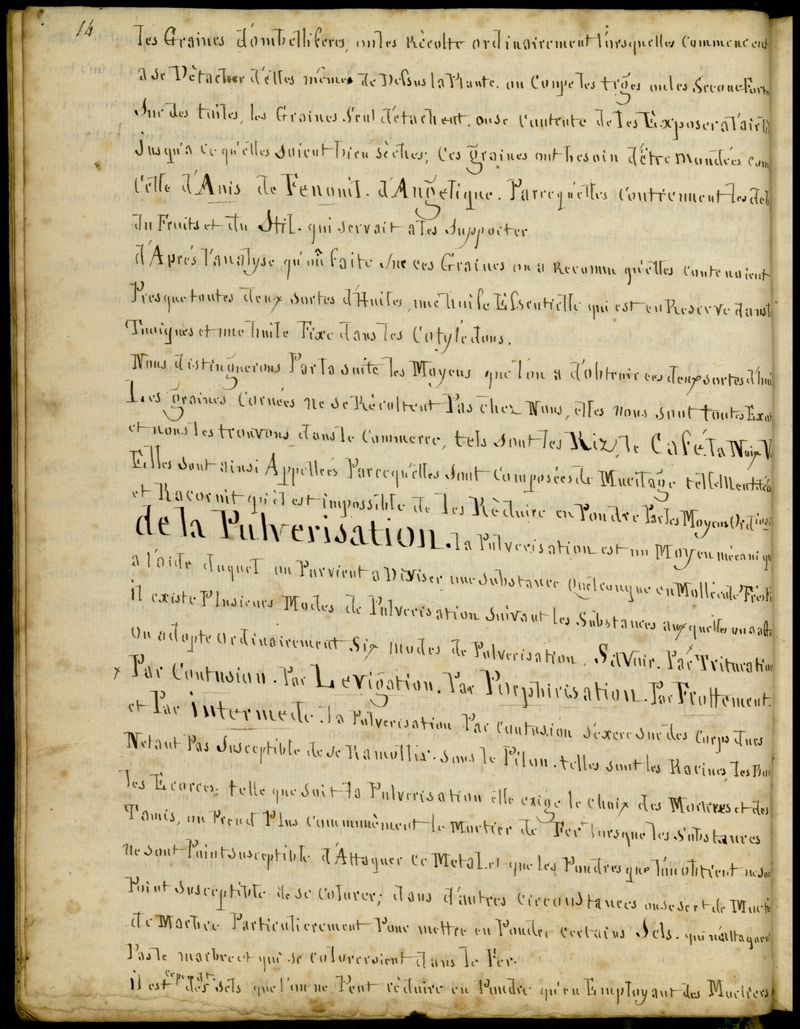 14
les Graines d'ombelliferes, on les Récolte ordinairement lorsquelles commencent
a se Détacher d'elles mêmes de Dessus la Plante. on Coupe les tiges on les Secoue Fort
Sur des toiles, les Graines Seul détachent, on se Contente de les Exposer a l'air
Jusqu'a ce qu'elles soient bien sèches; Ces graines ont besoin d'être Mondées com
Celle d'Anis de Fenouil. d'Angelique. Parcequ'elles Contiennent des deb
du Fruits et du Stil. qui servait a les Supporter
d'Après l'analyse qu'on faite sur ces Graines on a Reconnu qu'elles contenoient
Presque toutes deux sortes d'Huiles, une huile Essentielle qui est en Reserve dans
et une huile Fixe dans les Cotylédons.
Nous distinguerons Par la suite les Moyens que l'on a d'obtenir ces deux sortes d'hui
Les graines Cornées ne se Récoltent Pas chez Nous, elles nous sont toutes
et nous les trouvons dans le Commerce, tels sont les Riz, le Café, la Noix V
Elles sont ainsi Appellées Parcequ'elles sont Composées de Mucilage tellement
et Racornit qu'il est impossible de les Réduire en Poudre Par les Moyens Ordin
de la Pulverisation. la Pulverisation est un Moyen mécaniqu
a l'aide duquel on Parvient a Diviser une substance Quelconque en Mollécule
il existe Plusieurs Modes de Pulverisation suivant les Substances auxquelles on a
On adopte ordinairement Six modes de Pulverisation. SaVoir. Par Trituration
x Par Contusion. Par Levigation. Par Porphirisation. Par Frottement.
et Par intermede. la Pulverisation Par Contusion s'exerce sur des Corps Durs
Netant Pas Susceptible de se Ramollir. sous le Pilon. telles sont les Racines, les Boi
les Ecorces; telle que soit la Pulverisation elle exige le choix des Mortiers et des
Tamis, on Prend Plus Communément le Mortier de Fer lorsque les Substances
ne sont Point susceptible d'Attaquer ce Metal. et que les Poudres que l'on obtient ne so
Point Susceptible de se Colorer; dans d'autres circonstances on se sert de
de Marbre Particulierement Pour mettre en Poudre certains Sels. qui n'attaquent
Pas le marbre et qui se coloreroient dans le Fer.
cependt
il est des Sels que l'on ne Peut réduire en Poudre qu'en Employant des Mortiers